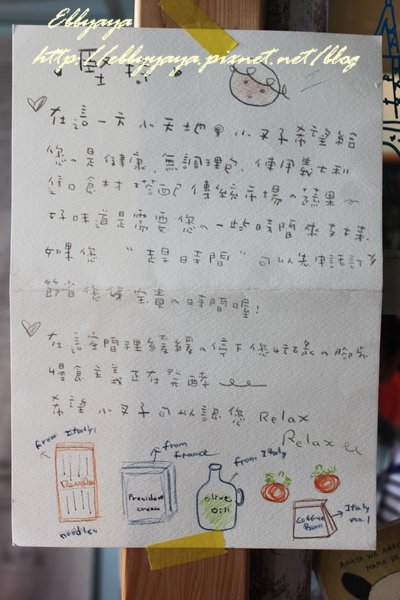 Ebbyaya
http://ebbyyaya.pixnet.net/blog
堅持
在這一方小天地裡小叉子希望給
您の是健康、無調理包,使用義大利
進口食材搭配傳統市場の蔬果～
好味道是需要您の一些時間來支持.
如果您"趕時間"可以先電話訂
節省您保寶貴の時間喔!
在這空間裡緩緩の停下您の腳步
慢食主義正在發酵
希望小叉子可以讓您 Relax
Relax
from Italy!
noodles
from France
President
cream
from Italy
olive
oil
Coffee
Bean
Italy
no.1